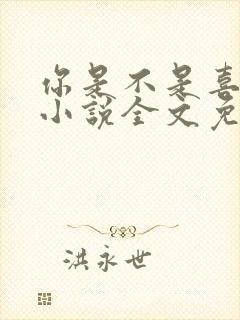 你是不是喜
小说全文免
洪永世